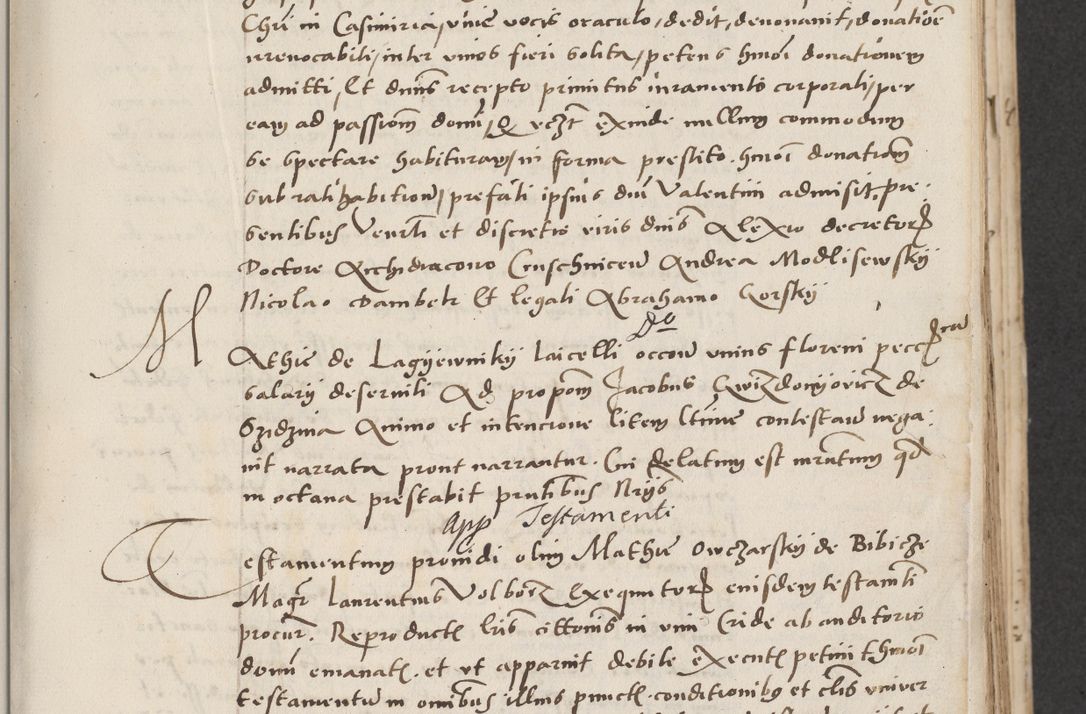 Chri in Casimiria, vive vocis oraculo, dedit, devovavit, donatiõe
irrevocabili, inter vivos fieri solita, petens hmõi donationem
admitti, Et dnus recepto primitus iuramento corporali, per
eam ad passiom domi, Q eczt exinde nullum commodum
se spectare habituram, in forma prestito. hmõi donatiom
sub rati habitione, prefati ipsius dni Valentini admisit, pre-
sentibus Venrli et discretis viris dnis Alexio decretorum
Doctore Archidiacono Cruschnicen Andrea Modlisewskij
Nicolao Dambek Et legali Abrahamo Gorskij
do
Mathie de Lagyewnikij laicelli occon vnius floreni pecc
salarij deserviti Ad propom Jacobus Gwizdonyovicz de
Szidzina Animo et intencione litem ltime contestan nega-
vit narrata prout narrantur. Cui delatum est iurntum qd
in octava prestabit pntibus Nrijs
App Testamenti
Testamentum providi olim Mathie Owczarskij de Bibicze
Magr Laurentius Volborz Exequutor eiusdem testamti
procur. Reproductis lris cittonis in vim Cride ab auditorio
domi emanatis. et vt apparuit debite executis petiit hmõi
testamentum in omibus illius punctis. conditionibus et clis vniver